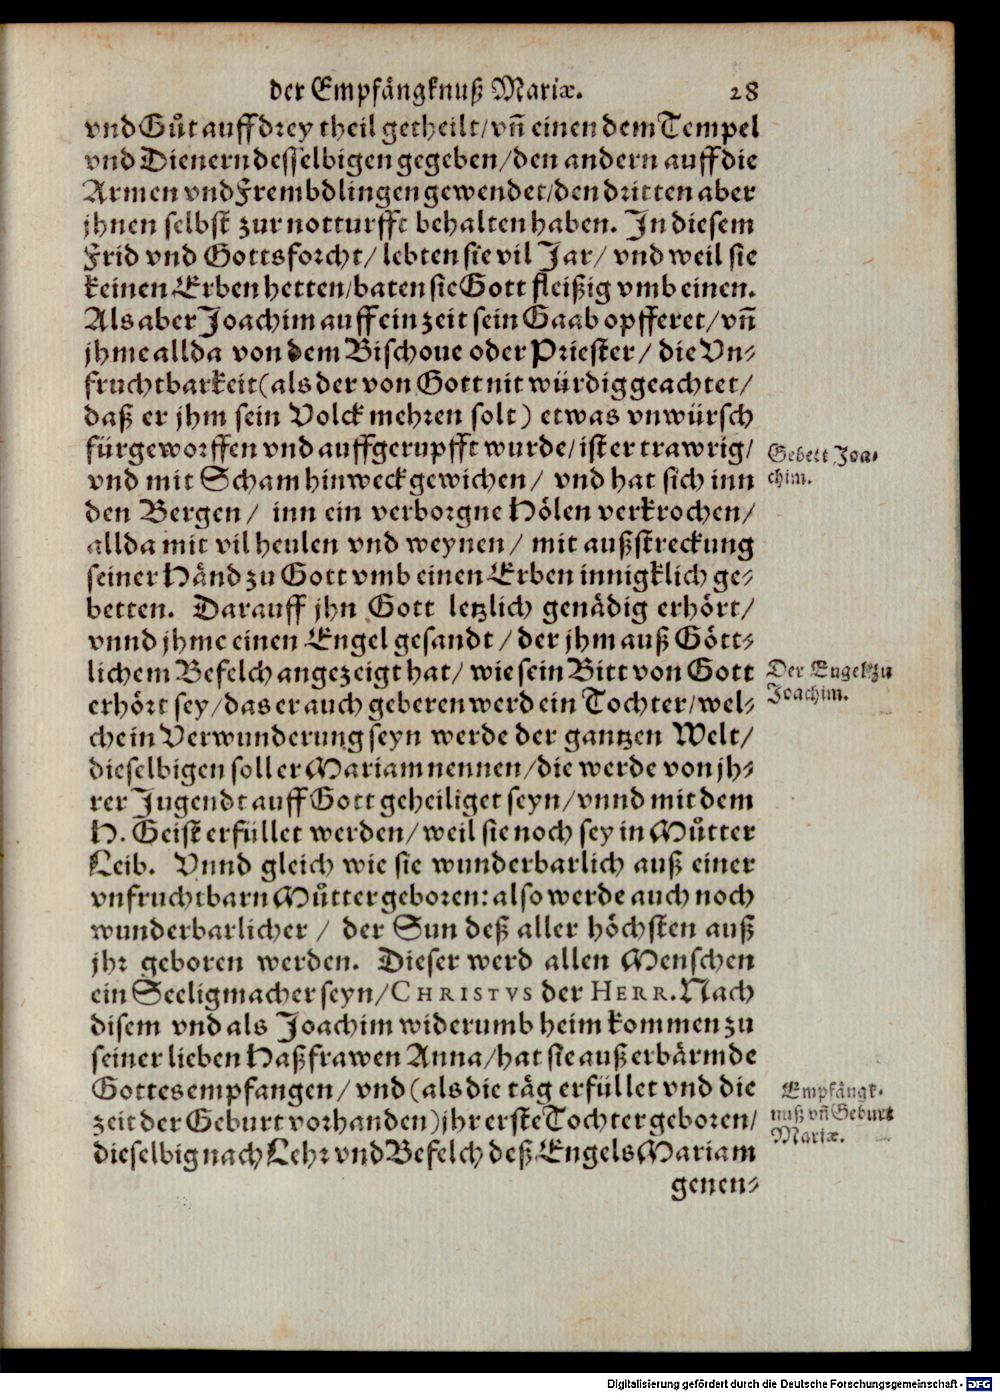 der Empfångknuß Mariæ. 28
vnd Gůt auff drey theil getheilt/ vñ einen dem Tempel
vnd Dienern desselbigen gegeben/ den andern auff die
Armen vnd Frembdlingen gewendet/ den dritten aber
jhnen selbst zur notturfft behalten haben. In diesem
Frid vnd Gottsforcht/ lebten sie vil Jar/ vnd weil sie
keinen Erben hetten/ baten sie Gott fleißig vmb einen.
Als aber Joachim auff ein zeit sein Gaab opfferet/ vñ
jhme allda von dem Bischoue oder Priester/ die Vn-
fruchtbarkeit (als der von Gott nit würdig geachtet/
daß er jhm sein Volck mehren solt) etwas vnwürsch
fürgeworffen vnd auffgerupfft wurde/ ist er trawrig/
Gebett Joa-
chim.
vnd mit Scham hinweck gewichen/ vnd hat sich inn
den Bergen/ inn ein verborgne Hölen verkrochen/
allda mit vil heulen vnd weynen/ mit außstreckung
seiner Händ zu Gott vmb einen Erben innigklich ge-
betten. Darauff jhn Gott letzlich genädig erhört/
vnnd jhme einen Engel gesandt/ der jhm auß Gött-
lichem Befelch angezeigt hat/ wie sein Bitt von Gott
Der Engel zu
Joachim.
erhört sey/ das er auch geberen werd ein Tochter/ wel-
che in Verwunderung seyn werde der gantzen Welt/
dieselbigen soll er Mariam nennen/ die werde von jh-
rer Jugendt auff Gott geheiliget seyn/ vnnd mit dem
H. Geist erfüllet werden/ weil sie noch sey in Můtter
Leib. Vnnd gleich wie sie wunderbarlich auß einer
vnfruchtbarn Můtter geboren: also werde auch noch
wunderbarlicher/ der Sun deß aller höchsten auß
jhr geboren werden. Dieser werd allen Menschen
ein Seeligmacher seyn/ CHRISTVS der HERR. Nach
disem vnd als Joachim widerumb heim kommen zu
seiner lieben Haßfrawen Anna/ hat sie auß erbärmde
Gottes empfangen/ vnd (als die täg erfüllet vnd die
Empfångk-
nuß vñ Geburt
Mariæ.
zeit der Geburt vorhanden) jhr erste Tochter geboren/
dieselbig nach Lehr vnd Befelch deß Engels Mariam
genen-
Digitalisierung gefördert durch die Deutsche Forschungsgemeinschaft - DFG